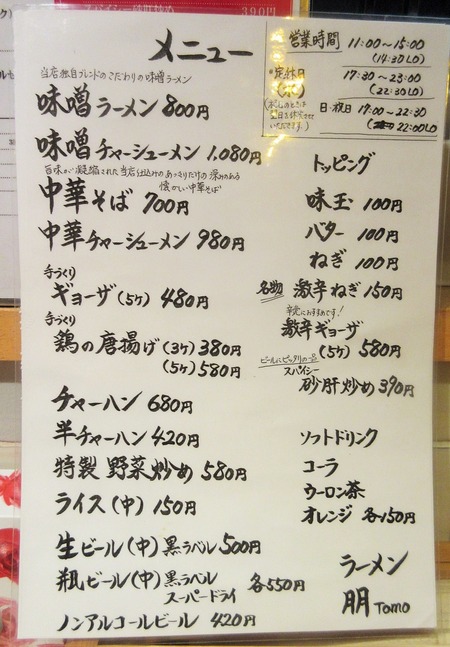 スパイシー砂肝炒め 390円
メニュー
営業時間 11:00~15:00
(14:30LO)
17:30~23:00
(22:30LO)
日・祝日 17:00~22:30
22:00LO
・定休日
(水)
当店独自ブレンドのこだわりの味噌ラーメン
味噌ラーメン 800円
味噌チャーシューメン 1,080円
旨味が凝縮された当店仕込みのあっさりだけの深みのある
懐かしい中華そば
中華そば 700円
中華チャーシューメン 980円
手づくり
ギョーザ(5ケ) 480円
手づくり
鶏の唐揚げ(3ケ) 380円
(5ケ) 580円
チャーハン 680円
半チャーハン 420円
特製 野菜炒め 580円
ライス(中) 150円
生ビール(中)黒ラベル 500円
瓶ビール(中)黒ラベル
スーパードライ 各550円
ノンアルコールビール 420円
トッピング
味玉 100円
バター 100円
ねぎ 100円
名物 激辛ねぎ 150円
辛党におすすめです!
激辛ギョーザ
(5ケ) 580円
ビールにピッタリの一品
スパイシー
砂肝炒め 390円
ソフトドリンク
コーラ
ウーロン茶
オレンジ 各150円
ラーメン
朋 Tomo